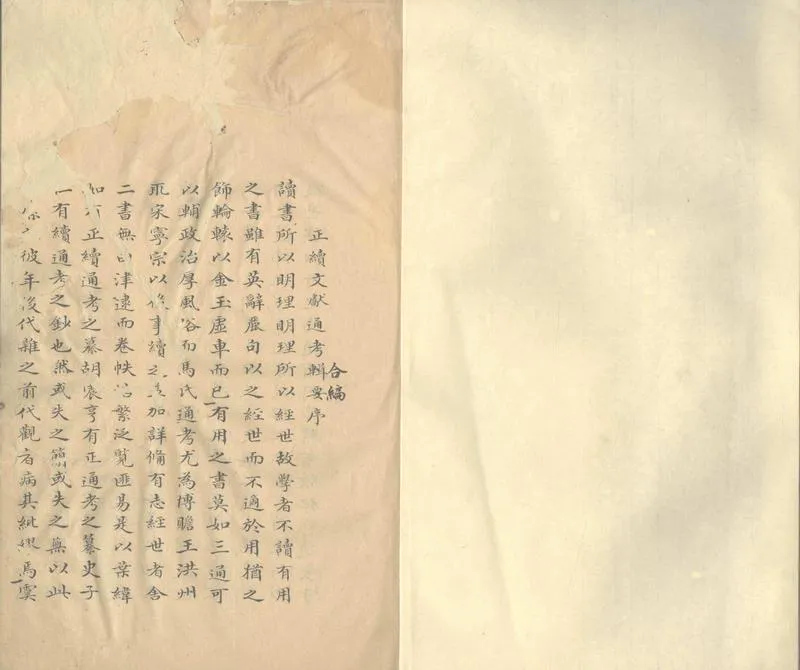 正續文獻通考輯要序
合編
讀書所以明理明理所以經世故學者不讀有用
之書雖有英辭麗句以之經世而不適於用猶之
飾輪轅以金玉虛車而已有用之書莫如三通可
以輔政治厚風俗而馬氏通考尤為博贍王洪州
取宋寧宗以後事續之加詳備有志經世者舍
二書無由津逮而卷帙繁泛覽匪易是以葉緯
如有正續通考之纂胡震亨有正通考之纂史子
一有續通考之鈔也然或失之簡或失之無以此
彼年後代雜之前代觀者病其紕繆馬虞